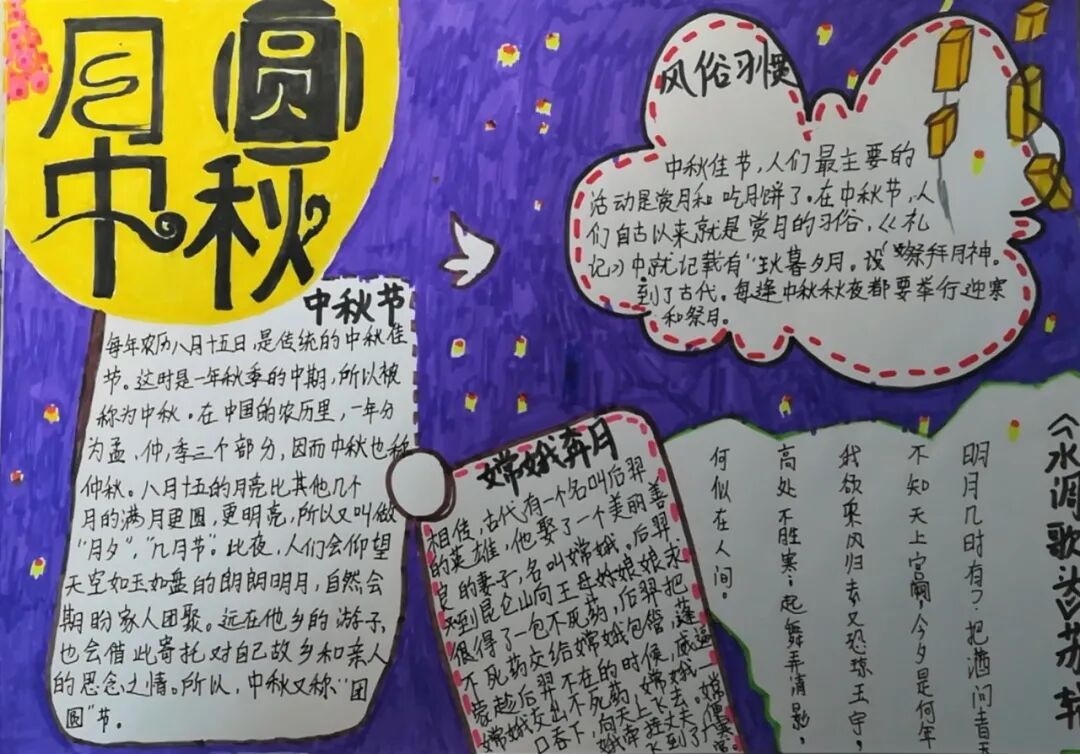 月圆
中秋
中秋节
每年农历八月十五日,是传统的中秋佳
节。这时是一年秋季的中期,所以被
称为中秋。在中国的农历里,一年分
为孟,仲,季三个部分,因而中秋也称
仲秋。八月十五的月亮比其他几个
月的满月更圆,更明亮,所以又叫做
“月夕”,“八月节”。此夜,人们会仰望
天空如玉如盘的朗朗明月,自然会
期盼家人团聚。远在他乡的游子,
也会借此寄托对自己故乡和亲人
的思念之情。所以,中秋又称“团
圆”节。
风俗习惯
中秋佳节,人们最主要的
活动是赏月和吃月饼了。在中秋节,人
们自古以来就是赏月的习俗,《礼
记》中就记载有“秋暮夕月。设祭拜月神。
到了古代。每逢中秋秋夜都要举行迎寒
和祭月。
嫦娥奔月
相传,古代有一个名叫后羿
的英雄,他娶了一个美丽善
良的妻子,名叫嫦娥。后羿
到昆仑山向王母娘娘求
得了一包不死药,后羿把
不死药交给嫦娥包管,蓬
蒙趁后羿不在的时候,威逼
嫦娥交出不死药
口吞下,向天上飞去
《水调歌头》苏轼
明月几时有?把酒问青
不知天上宫阙,今夕是何年
我欲乘风归去又恐琼玉宇,
高处不胜寒;起舞弄清影,
何似在人间。